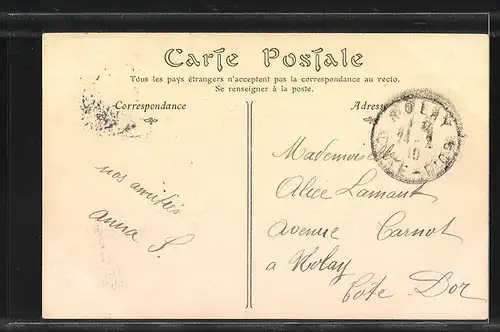 Carte Postale
Tous les pays étrangers n'acceptent pas la correspondance au recto.
Se renseigner à la poste.
Correspondance
Adresse
NOLAY
CÔTE-D'OR
nos amitiés
anna S.
Mademoiselle
Alice Lamant
Avenue Carnot
a Nolay
Côte Dor